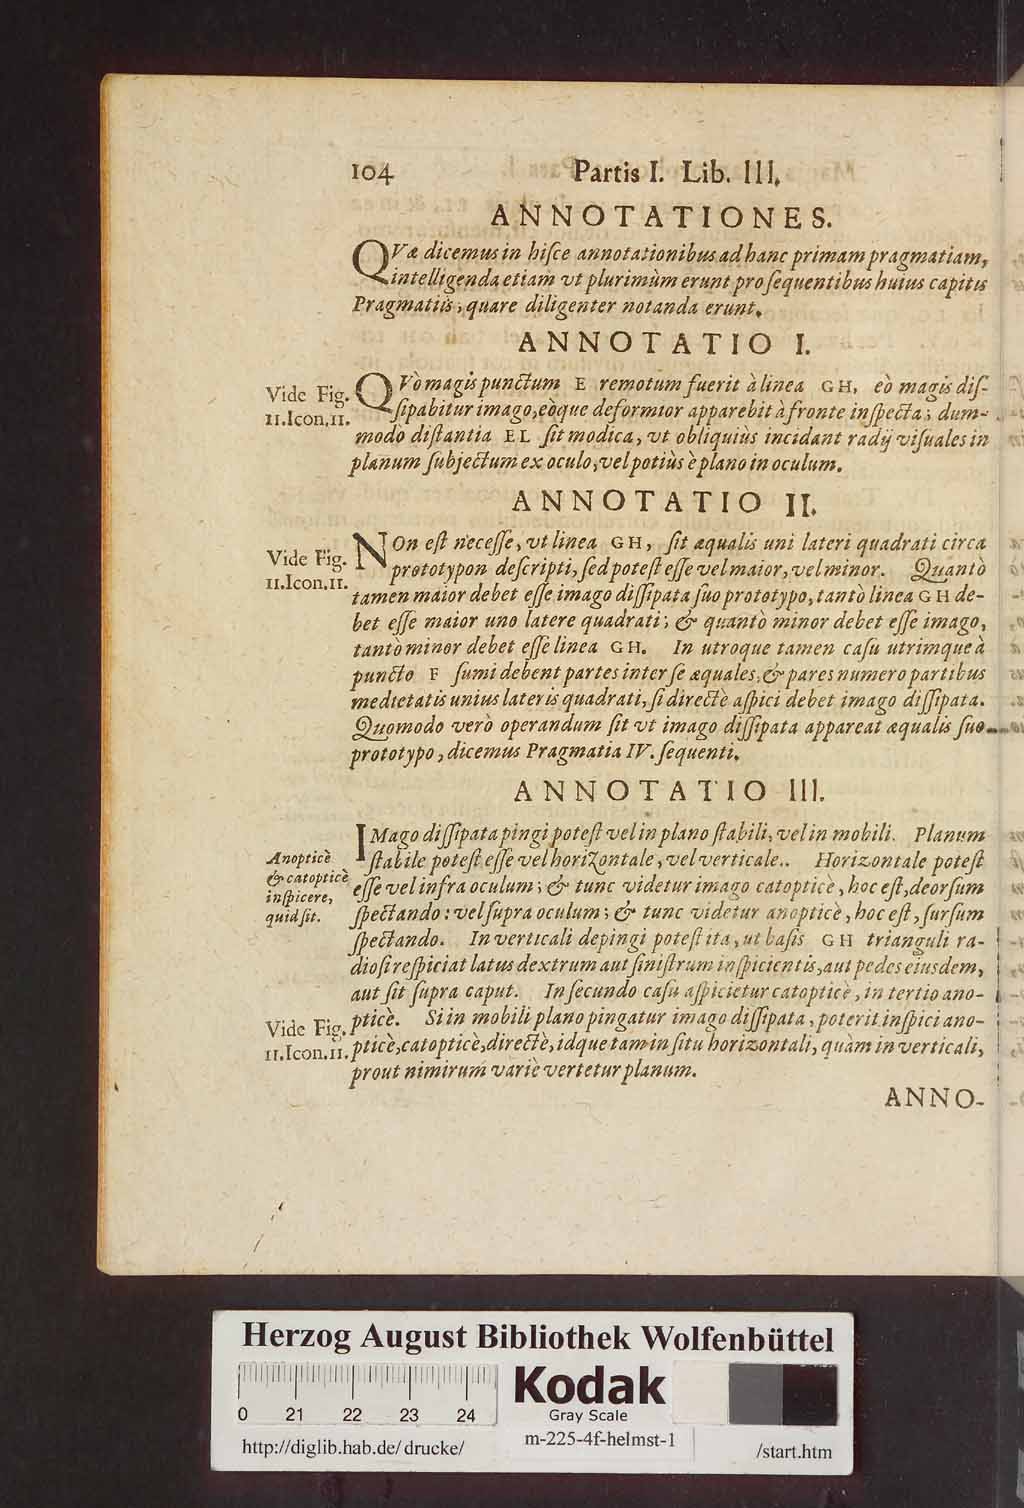 104 Partis I. Lib. III.
ANNOTATIONES.
QVæ dicemus in hiſce annotationibus ad hanc primam pragmatiam,
intelligenda etiam vt plurimùm erunt pro ſequentibus huius capitis
Pragmatiis; quare diligenter notanda erunt.
ANNOTATIO I.
Vide Fig.
11.Icon.11.
QVò magis punctum E remotum fuerit à linea GH, eò magis diſ-
ſipabitur imago, eòque deformior apparebit à fronte inſpecta; dum-
modò diſtantia EL ſit modica, vt obliquiùs incidant radij viſuales in
planum ſubjectum ex oculo, vel potiùs è plano in oculum.
ANNOTATIO II.
Vide Fig.
11.Icon.11.
NOn eſt neceſſe, vt linea GH, ſit æqualis uni lateri quadrati circa
prototypon deſcripti, ſed poteſt eſſe vel maior, vel minor. Quantò
tamen maior debet eſſe imago diſſipata ſuo prototypo, tantò linea GH de-
bet eſſe maior uno latere quadrati; & quantò minor debet eſſe imago,
tantò minor debet eſſe linea GH. In utroque tamen caſu utrimque à
puncto F ſumi debent partes inter ſe æquales, & pares numero partibus
medietatis unius lateris quadrati, ſi directè aſpici debet imago diſſipata.
Quomodo verò operandum ſit vt imago diſſipata appareat æqualis ſuo
prototypo, dicemus Pragmatia IV. ſequenti.
ANNOTATIO III.
Anopticè
& catopticè
inſpicere,
quid ſit.
IMago diſſipata pingi poteſt vel in plano ſtabili, vel in mobili. Planum
ſtabile poteſt eſſe vel horizontale, vel verticale.. Horizontale poteſt
eſſe vel infra oculum; & tunc videtur imago catopticè, hoc eſt, deorſum
ſpectando: vel ſupra oculum; & tunc videtur anopticè, hoc eſt, ſurſum
ſpectando. In verticali depingi poteſt ita, ut baſis GH trianguli ra-
dioſi reſpiciat latus dextrum aut ſiniſtrum inſpicientis, aut pedes eiusdem,
aut ſit ſupra caput. In ſecundo caſu aſpicietur catopticè, in tertio ano-
pticè. Si in mobili plano pingatur imago diſſipata, poterit inſpici ano-
pticè, catopticè, directè, idque tam in ſitu horizontali, quàm in verticali,
prout nimirum variè vertetur planum.
Vide Fig.
11.Icon.11.
ANNO-
Herzog August Bibliothek Wolfenbüttel
0 21 22 23 24
Kodak
Gray Scale
http://diglib.hab.de/drucke/ m-225-4f-helmst-1 /start.htm